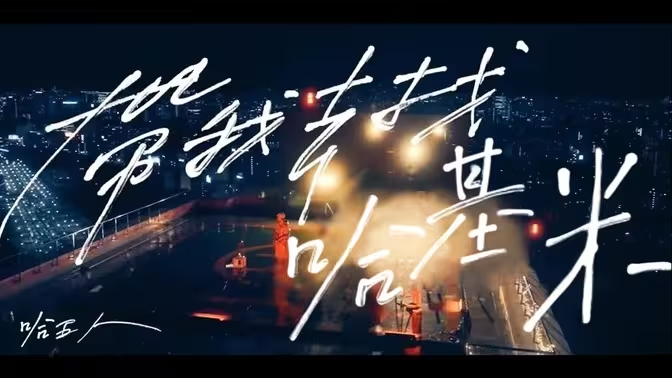 帶我去找
哈基米
哈五人